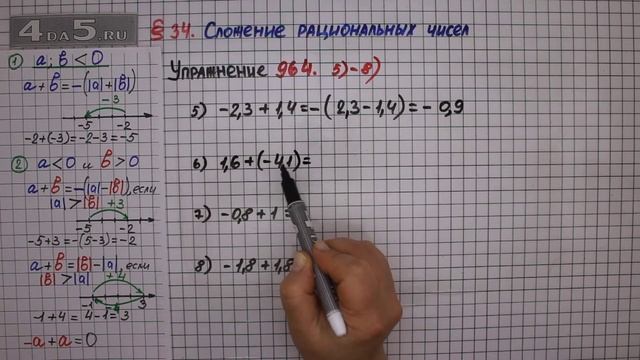 4DA5.RU
§ 34. Сложение рациональных чисел
Упражнение 964. 5)-8)
1) a; b < 0
a + b = -(|a| + |b|)
-3
-5 -2
-2+(-3)=-2-3=-5
2) a < 0 и b > 0
a + b = -(|a|-|b|), если
|a| > |b| +3
-5 -2
-5+3=-(5-3)=-2
a + b = |b|-|a|, если
|b| > |a| +4
-1 3
-1+4 = 4-1 = 3
-a + a = 0
5) -2,3 + 1,4 = -(2,3-1,4) = -0,9
6) 1,6 + (-4,1) =
7) -0,8 + 1 =
8) -1,8 + 1,8